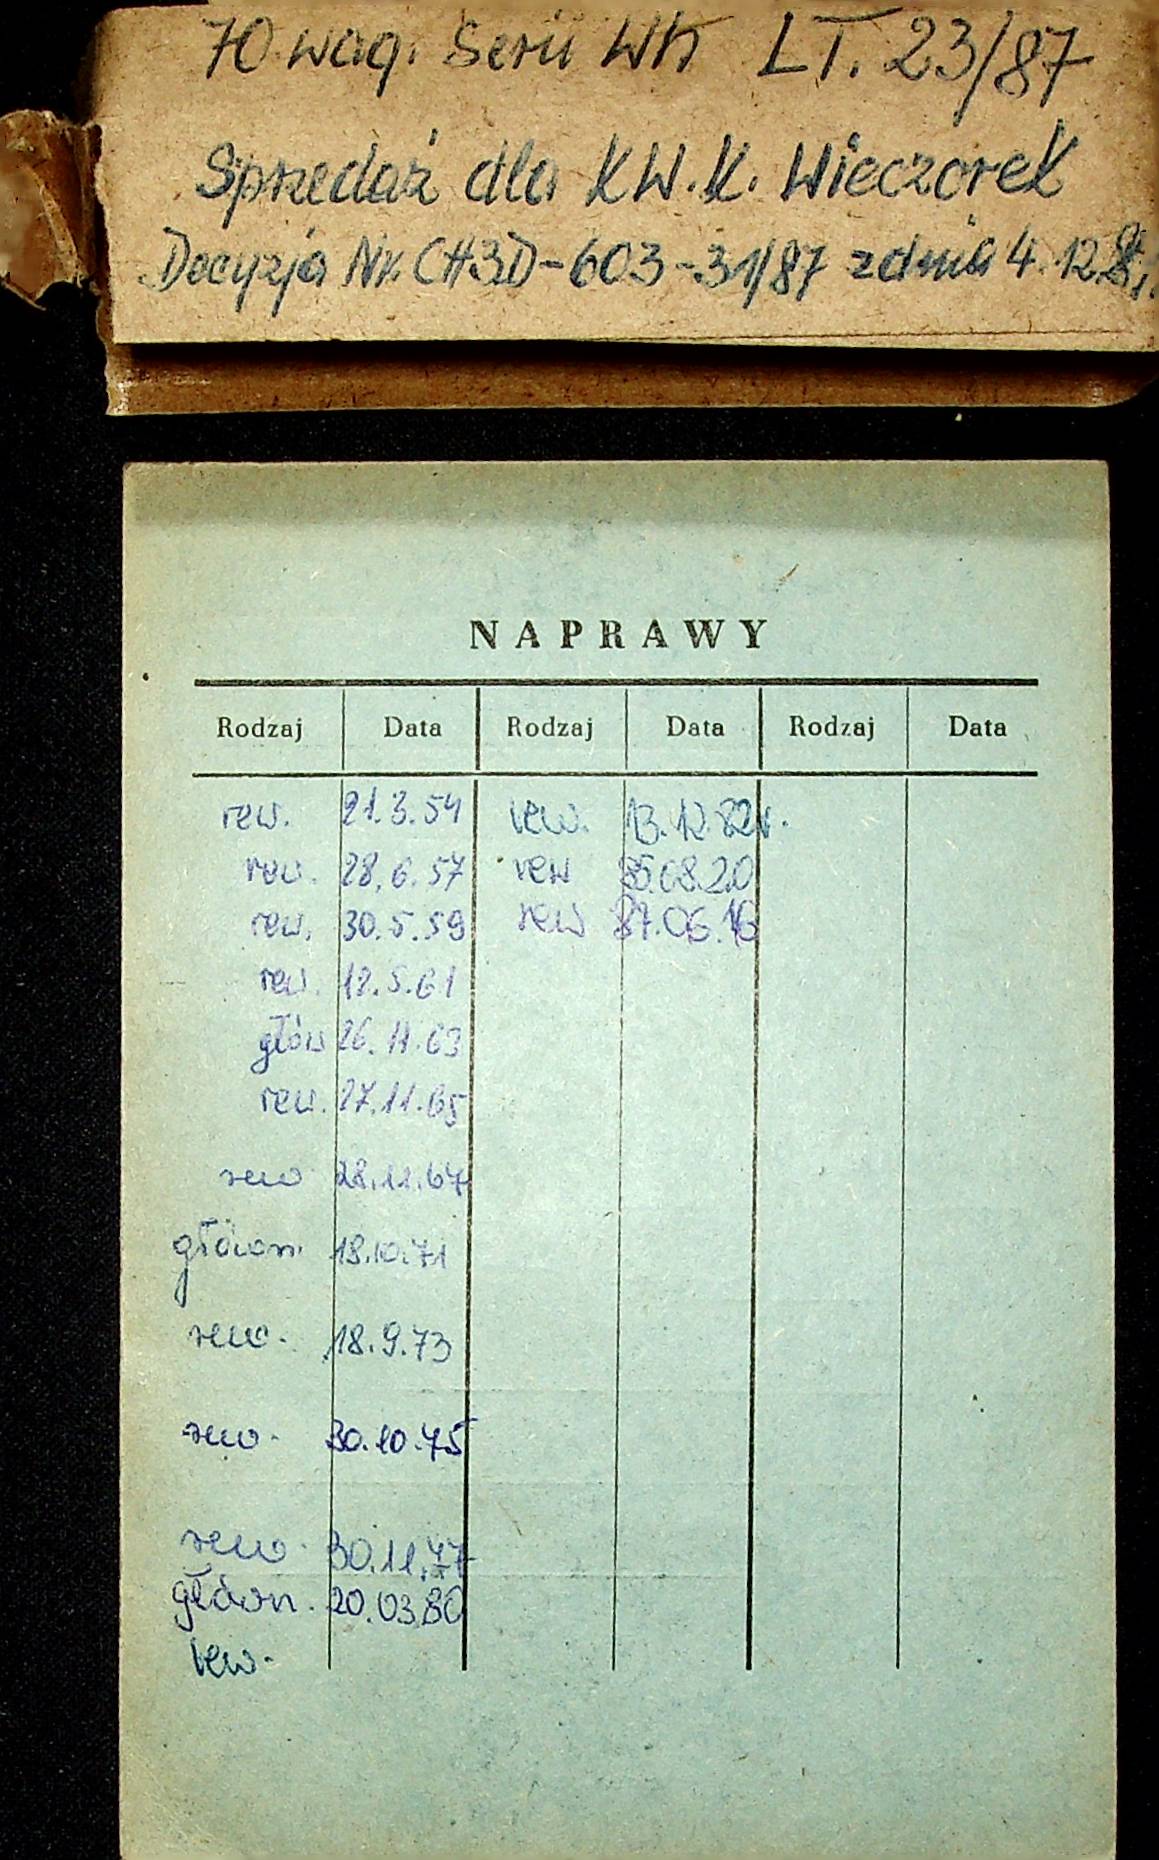 70 wag. Serii Wh LT. 23/87
Sprzedaż dla KW.K. Wieczorek
Decyzja Nr. CH3D-603-31/87 z dnia 4.12.
NAPRAWY
Rodzaj Data Rodzaj Data Rodzaj Data
rew. 21.3.54 rew. 13.12.82r.
rew. 28.6.57 rew 85.08.20
rew. 30.5.59 rew 87.06.16
rew. 12.5.61
główn 26.11.63
rew. 27.11.65
rew 28.11.67
główn. 18.10.71
rew. 18.9.73
rew. 30.10.75
rew. 30.11.77
główn. 20.03.80
rew.